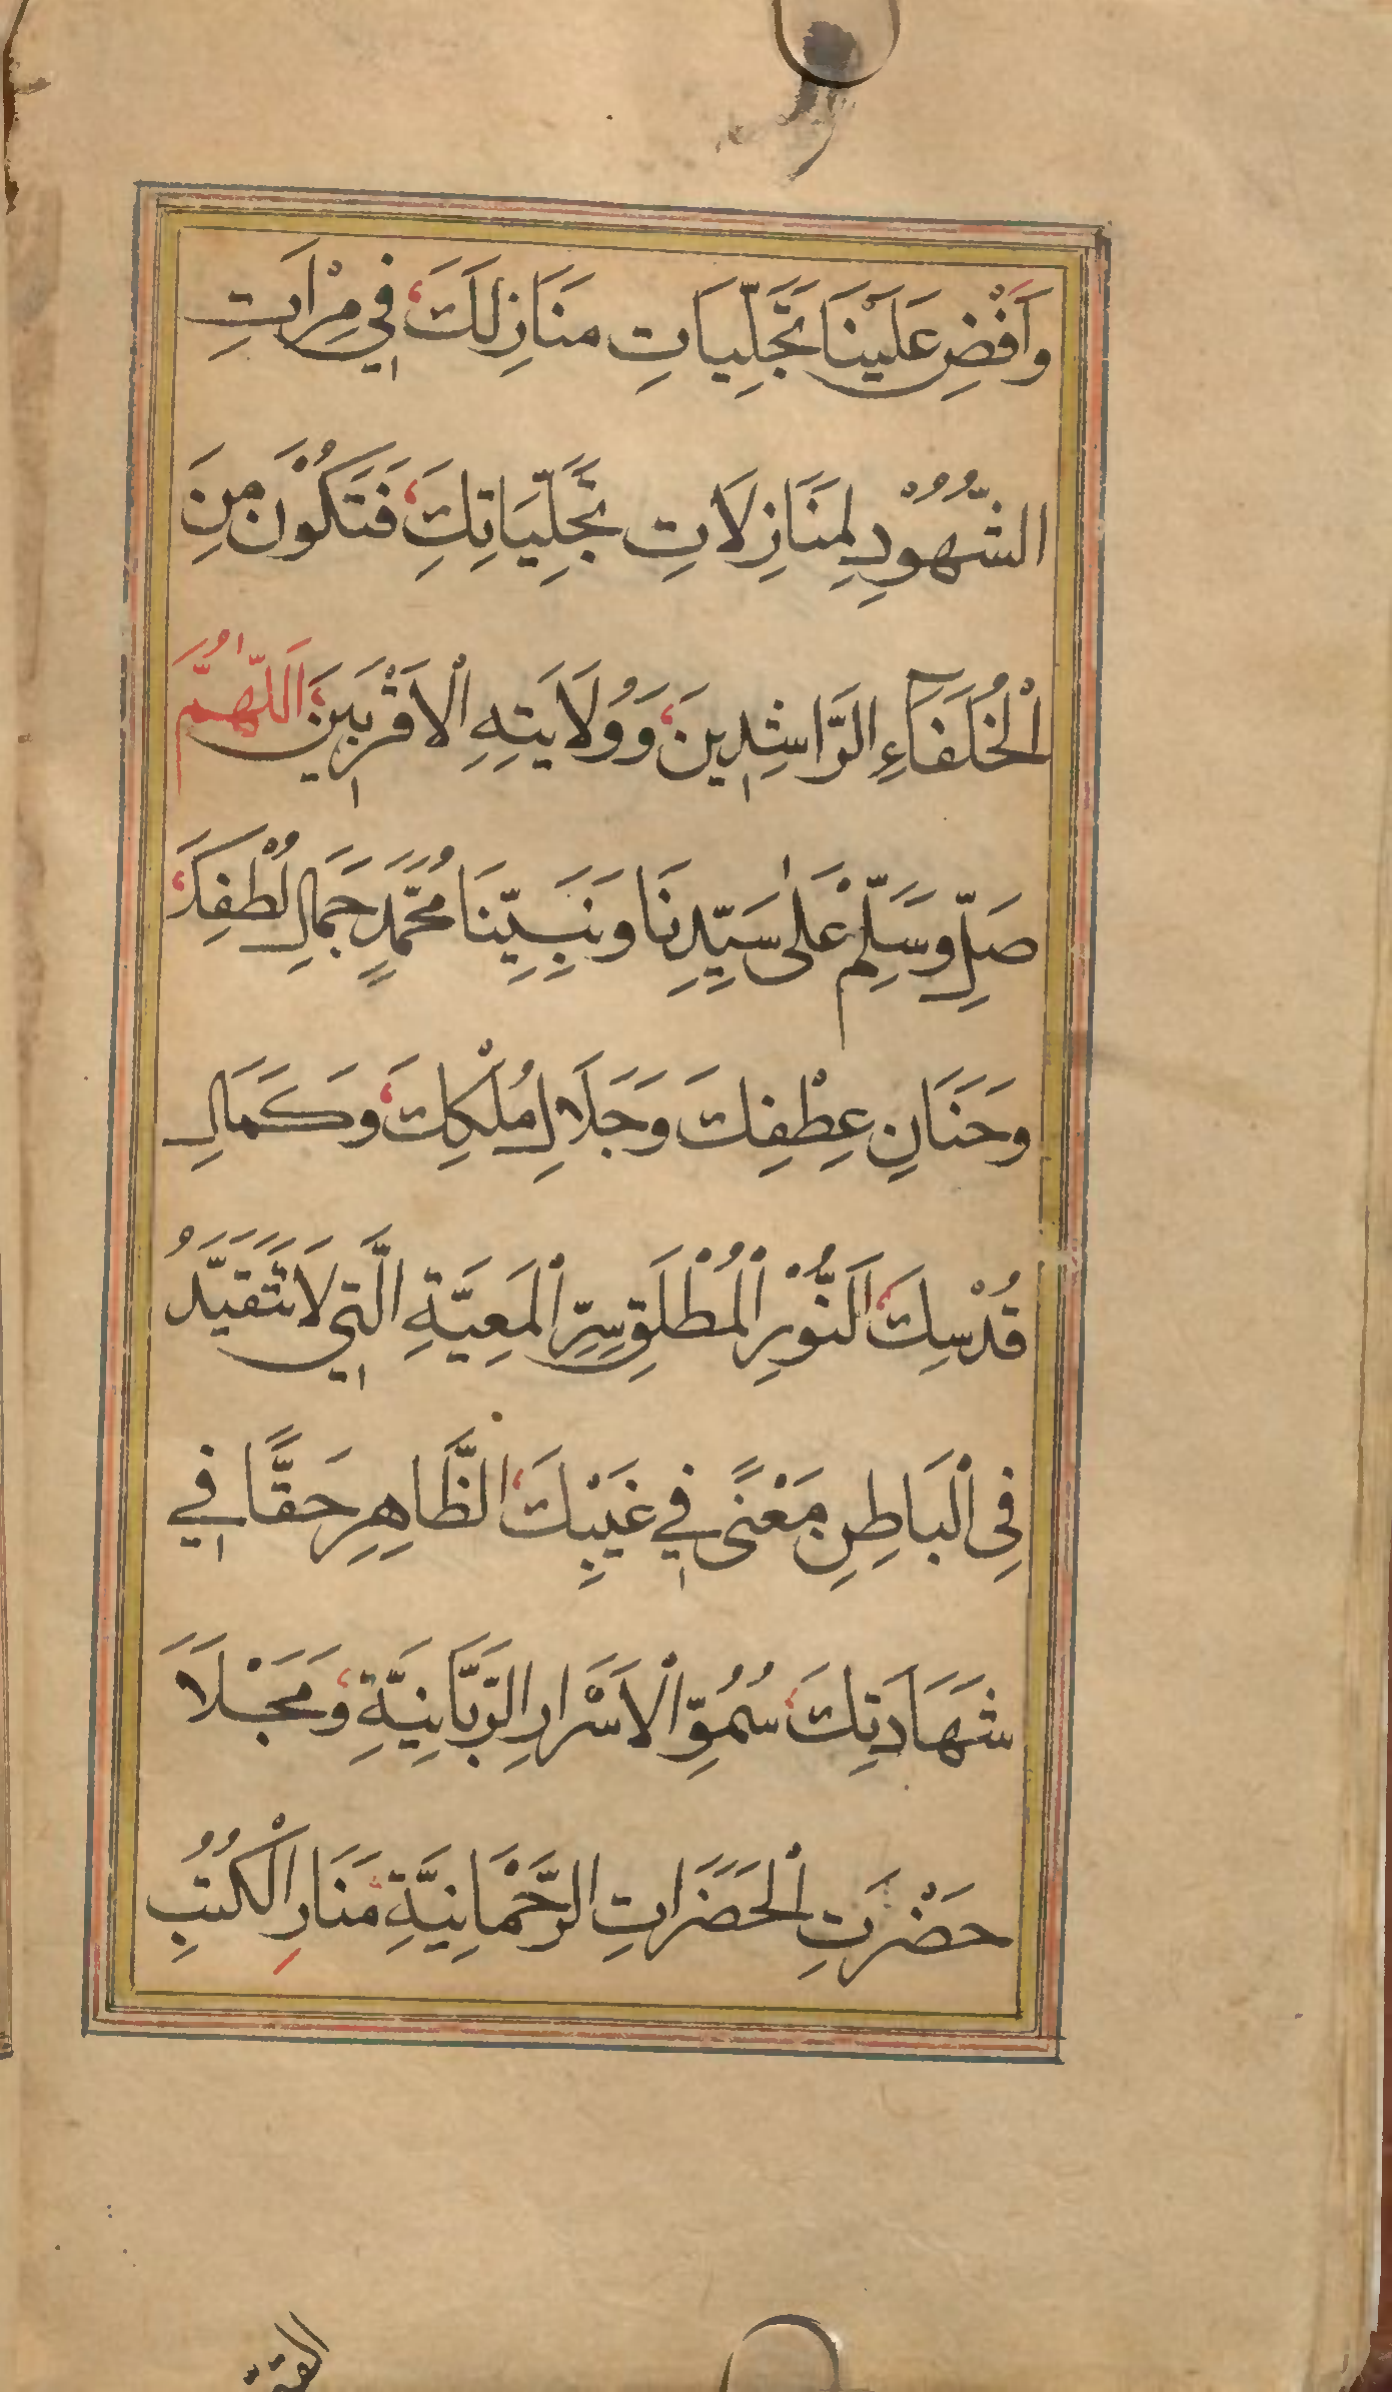 وَاَفْضِ عَلَيْنَا تَجَلِّيَاتِ مَنَازِلَكَ، في مِرْاَتِ
الشُّهُوْدِ لِمَنَازِلَاتِ تَجَلِّيَاتِكَ، فَتَكُوْنَ مِنَ
الْخُلَفَآءِ الرَّاشِدِينَ، وَوُلَايَتِهِ الْاَقْرَبِينَ، اَللّٰهُمَّ
صَلِّ وَسَلِّمْ عَلٰى سَيِّدِنَا وَنَبِيِّنَا مُحَمَّدٍ جَمَالِ لُطْفِكَ،
وَحَنَانِ عِطْفِكَ وَجَلَالِ مُلْكِكَ، وَكَمَالِ
قُدْسِكَ، اَلنُّوْرِ الْمُطْلَقِ سِرِّ الْمَعِيَّةِ الَّتِي لَا تَتَقَيَّدُ
فِى الْبَاطِنِ مَعْنًى في غَيْبِكَ، الظَّاهِرِ حَقًّا في
شَهَادَتِكَ، سُمُوِّ الْاَسْرَارِ الرَّبَّانِيَّةِ، وَمَجْلَاَ
حَضْرَتِ الْحَضَرَاتِ الرَّحْمَانِيَّةِ، مَنَارِ الْكُتُبِ